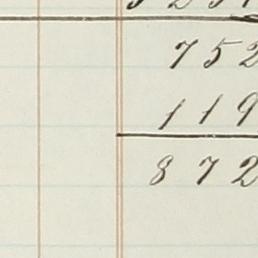 752
119
872